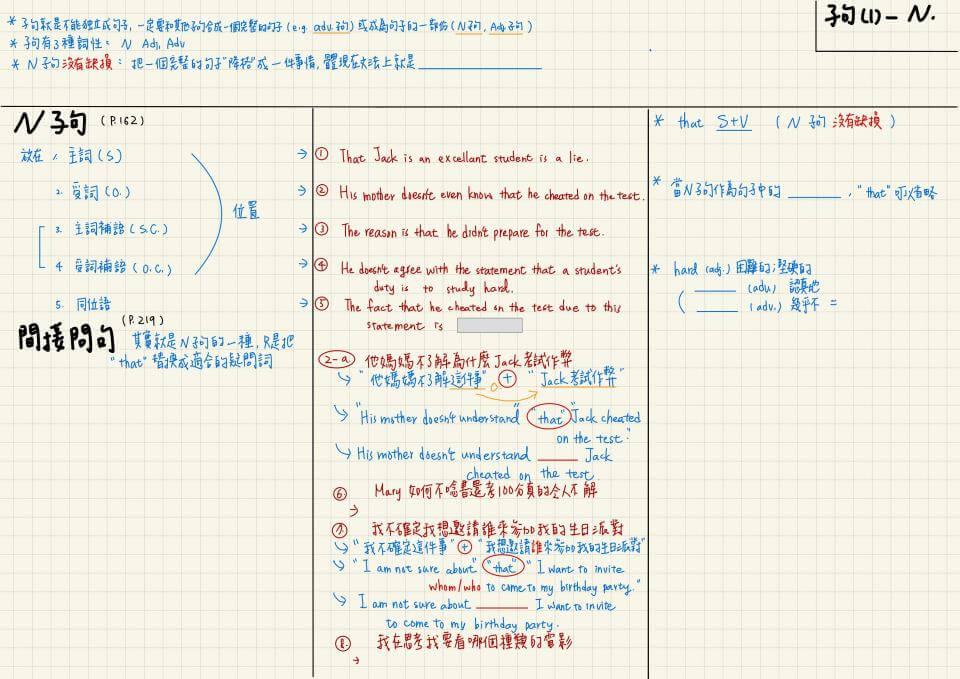 子句(1) - N.
* 子句就是不能獨立成句子,一定要和其他子句合成一個完整的句子 (e.g. adv.子句) 或成為句子的一部份 (N子句, Adj.子句)
* 子句有3種詞性: N Adj, Adv
* N 子句沒有缺損: 把一個完整的句子"降格"成一件事情,體現在文法上就是 ____________
N 子句 (P.162)
放在 1. 主詞 (S)
2. 受詞 (O.)
3. 主詞補語 (S.C.)
4 受詞補語 (O.C.)
位置
5. 同位語
間接問句 (P.219)
其實就是N子句的一種,只是把
"that" 替換成適合的疑問詞
→ ① That Jack is an excellant student is a lie.
→ ② His mother doesn't even know that he cheated on the test.
→ ③ The reason is that he didn't prepare for the test.
→ ④ He doesn't agree with the statement that a student's
duty is to study hard.
→ ⑤ The fact that he cheated on the test due to this
statement is
2-a 他媽媽不了解為什麼Jack考試作弊
↳ "他媽媽不了解這件事" o. + "Jack考試作弊"
↳ "His mother doesn't understand" "that" "Jack cheated
on the test."
↳ His mother doesn't understand ______ Jack
cheated on the test.
⑥ Mary 如何不唸書還考100分真的令人不解
→
⑦ 我不確定我想邀請誰來參加我的生日派對
↳ "我不確定這件事" + "我想邀請誰來參加我的生日派對"
↳ "I am not sure about" "that" "I want to invite
whom/who to come to my birthday party."
↳ I am not sure about ________ I want to invite
to come to my birthday party.
⑧. 我在思考我要看哪個種類的電影
→
* that S+V (N 子句 沒有缺損)
* 當N子句作為句子中的 ________, "that" 可以省略
* hard (adj.) 困難的;堅硬的
( ______ (adv) 認真地
______ (adv.) 幾乎不 =